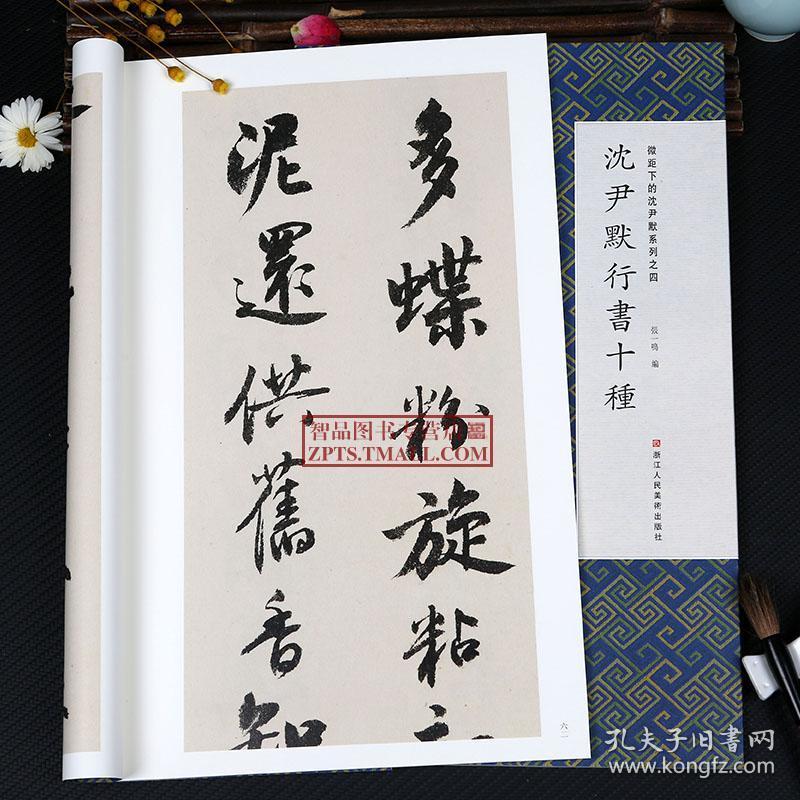 微距下的沈尹默系列之四
沈尹默行書十種
張一鳴 編
浙江人民美術出版社
多蝶粉旋粘
泥還供舊香知
六二
智品图书专营店
ZPTS.TMALL.COM
孔夫子旧書网
www.kongfz.com